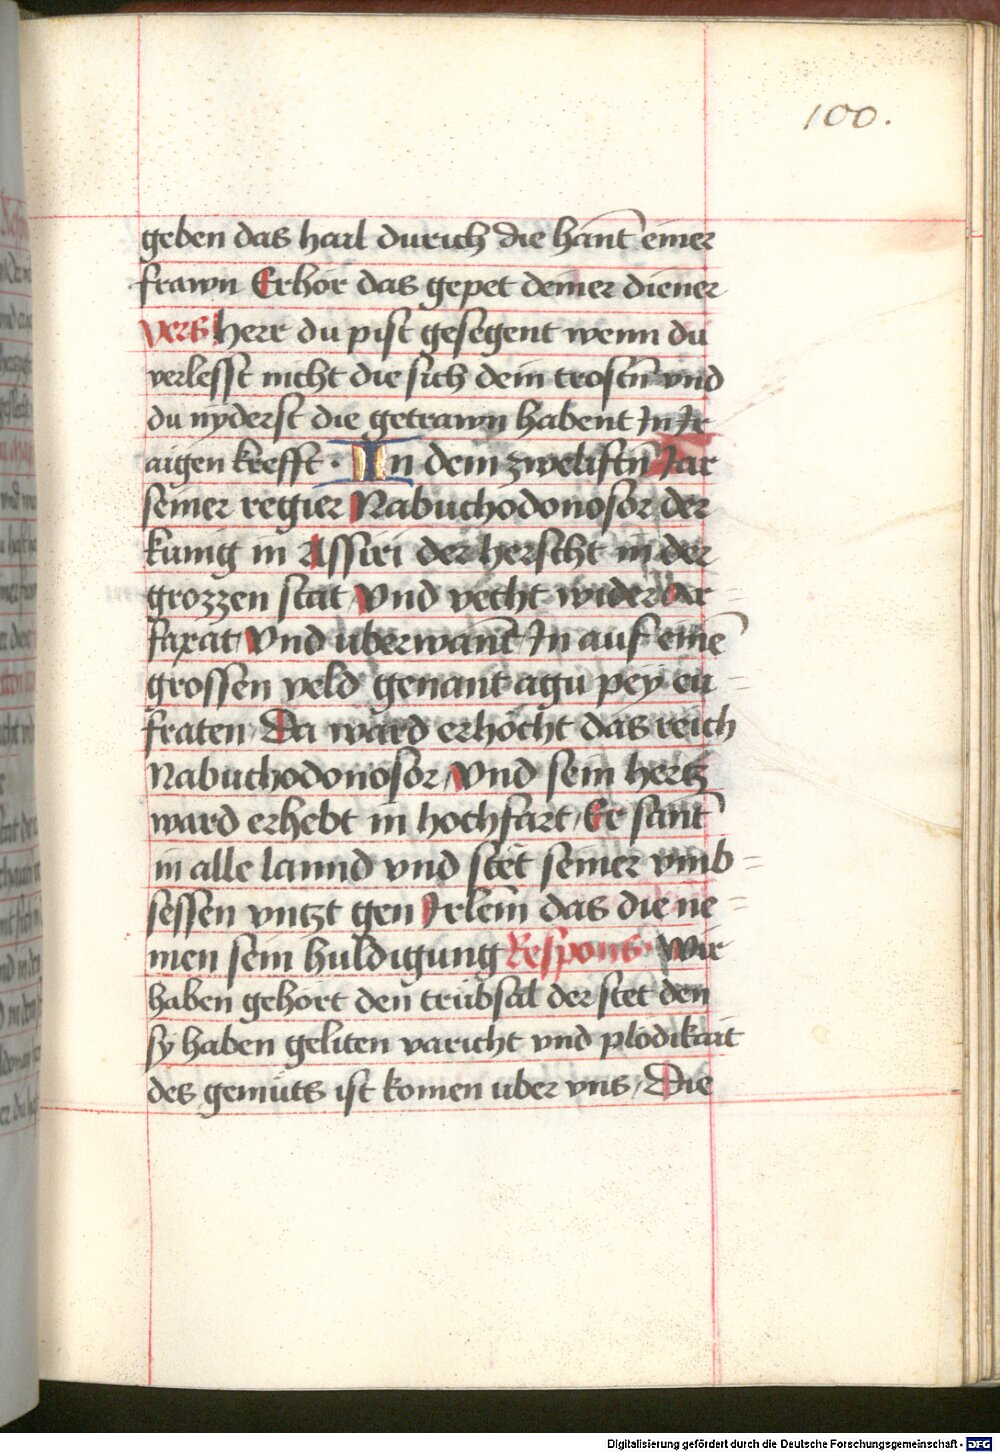 100.
geben das hail durich die hant einer
frawn Erhör das gepet deiner diener
Vers herr du pist gesegent wenn du
verlesst nicht die sich dein trostn̄ vnd
du nyderst die getrawn habent In Ir
aigen krefft · In dem zweliftn̄ Jar
seiner regier Nabuchodonosor der
kunig in Assiri der herscht in der
grozzen stat / Vnd vecht wider Ar=
faxat Vnd uberwant In auf einē
grossen veld genant agu pey eu=
fraten / Da ward erhöcht das reich
Nabuchodonosor / Vnd sein hertz
ward erhebt in hochfart / Er sant
in alle lannd vnd stet seiner vmb=
sessen vntzt gen Jrlem̄ das die ne=
men sein huldigung Respons · Wir
haben gehört den trübsal der stet den
sy haben geliten varicht vnd plödikait
des gemüts ist komen uber vns / Die
Digitalisierung gefördert durch die Deutsche Forschungsgemeinschaft - DFG